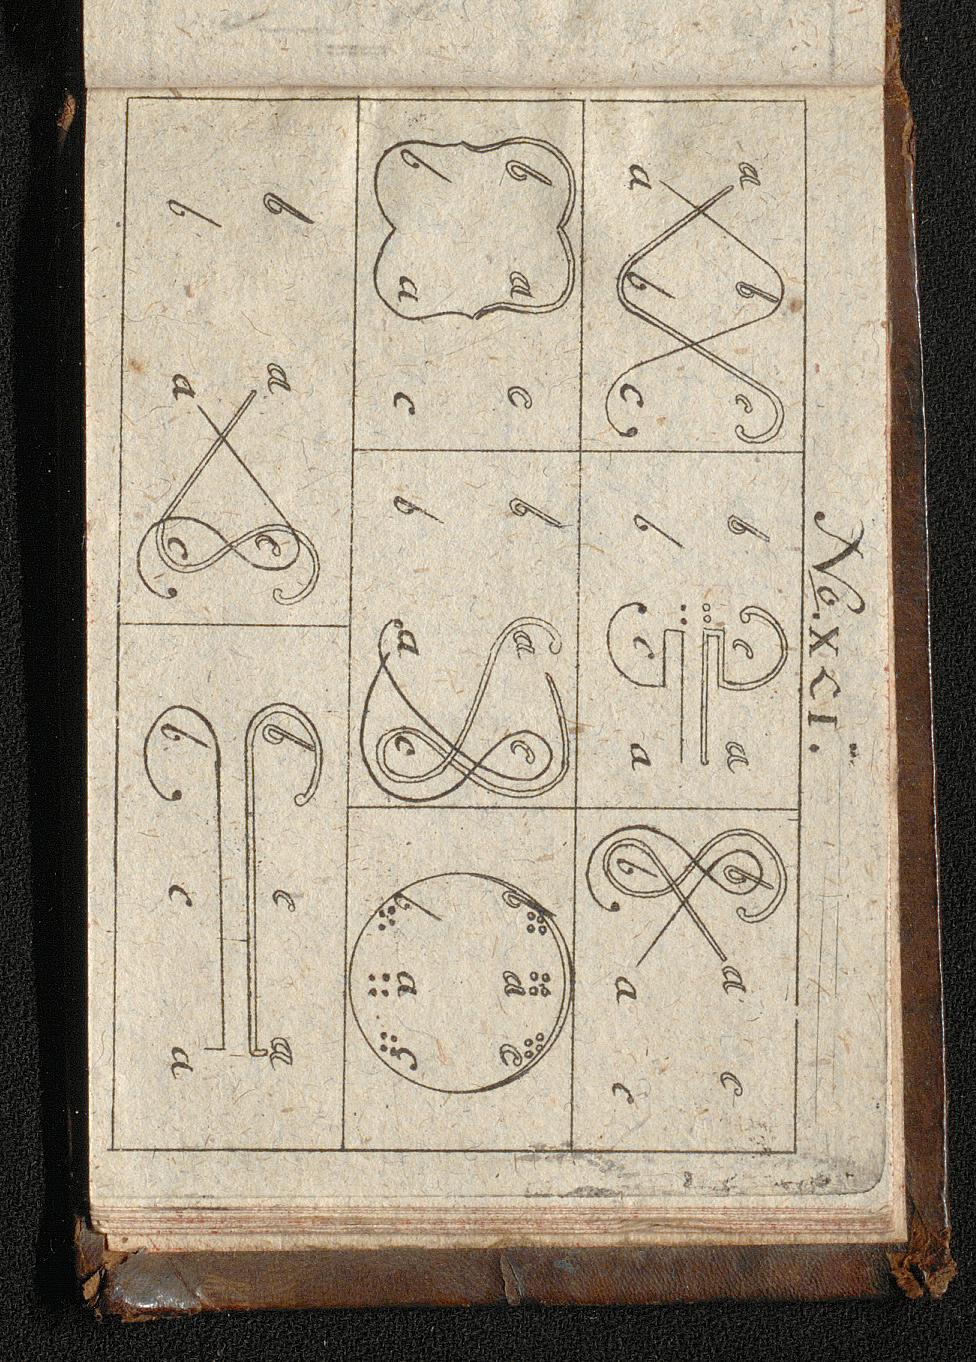 No. XCI.
a b c b c a b a c
a b c b c a b a c
b a c b a c b a c
b a c b a c b a c
b a c b c a
b a c b c a